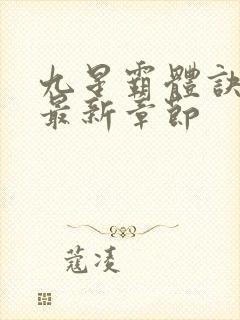 九星霸體訣
最新章節
蔻凌